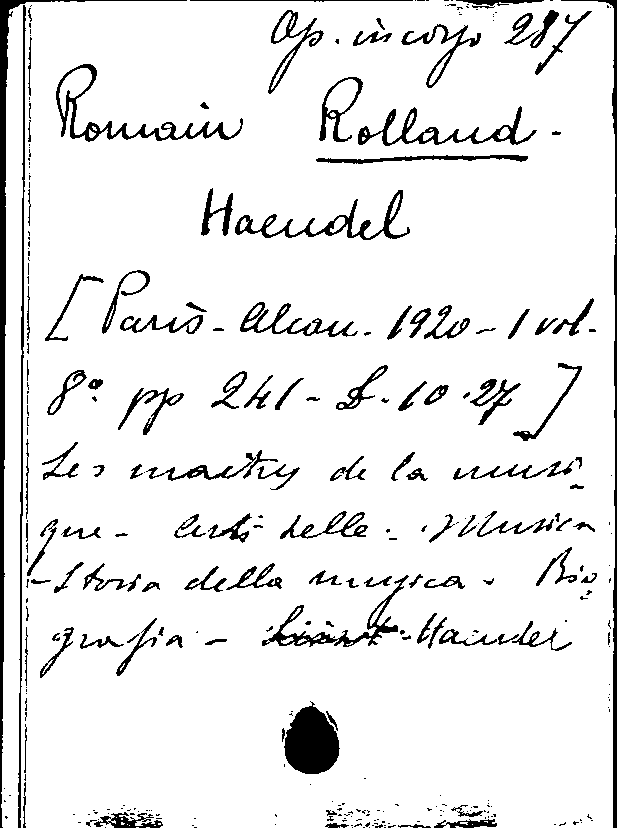 Op. in corpo 287
Romain Rolland -
Haendel
[Paris - Alcan - 1920 - 1 vol -
8° pp 241 - L. 10.27]
Les maitres de la musi-
que - Arti belle - Musica
- Storia della musica - Bio-
grafia - Haendel